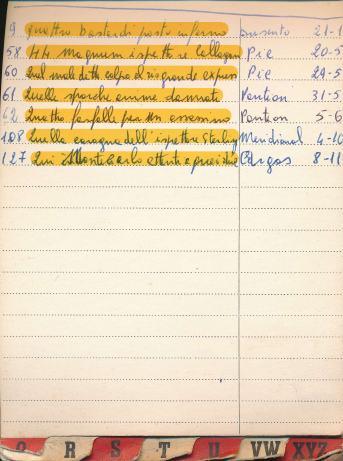 9 Quattro bastardi posto inferno 21-1
58 44 magnum ispettore Callagan Pic 20-5
60 Quel maledetto colpo al rio grande expres Pic 29-5
61 Quelle sporche anime dannate Pontion 31-5
62 Quattro farfalle per un assassino Pontion 5-6
108 Quella carogna dell'ispettore Sterling Meridional 4-10
127 Qui Montecarlo attenti a quei due Cargas 8-11
R S T U VW XYZ